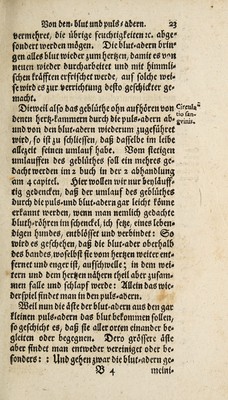 Von den-blut und puls-adern. 23
vermehret, die übrige feuchtigkeiten ꝛc. abge-
sondert werden mögen. Die blut-adern brin-
gen alles blut wieder zum hertzen, damit es von
neuen wieder durcharbeitet und mit himmli-
schen kräfften erfrischet werde, auf solche wei-
se wird es zur verrichtung desto geschickter ge-
macht.
Dieweil also das geblüthe ohn aufhören von
denen hertz-kammern durch die puls-adern ab-
und von den blut-adern wiederum zugeführet
wird, so ist zu schliessen, daß dasselbe im leibe
allezeit seinen umlauf habe. Vom stetigen
umlauffen des geblüthes soll ein mehres ge-
dacht werden im 2 buch in der 2 abhandlung
am 4 capitel. Hier wollen wir nur beyläuff-
tig gedencken, daß der umlauf des geblüthes
durch die puls-und blut-adern gar leicht könne
erkannt werden, wenn man nemlich gedachte
bluth-röhren im schenckel, ich setze, eines leben-
digen hundes, entblösset und verbindet: So
wird es geschehen, daß die blut-ader oberhalb
des bandes, woselbst sie vom hertzen weiter ent-
fernet und enger ist, aufschwelle; in dem wei-
tern und dem hertzen nähern theil aber zusam-
men falle und schlapf werde: Allein das wie-
derspiel findet man in den puls-adern.
Weil nun die äste der blut-adern aus den gar
kleinen puls-adern das blut bekommen sollen,
so geschicht es, daß sie aller orten einander be-
gleiten oder begegnen. Dero grössere äste
aber findet man entweder vereiniget oder be-
sonders: : Und gehen zwar die blut-adern ge-
B 4 meini-
Circula
tio san-
guinis.